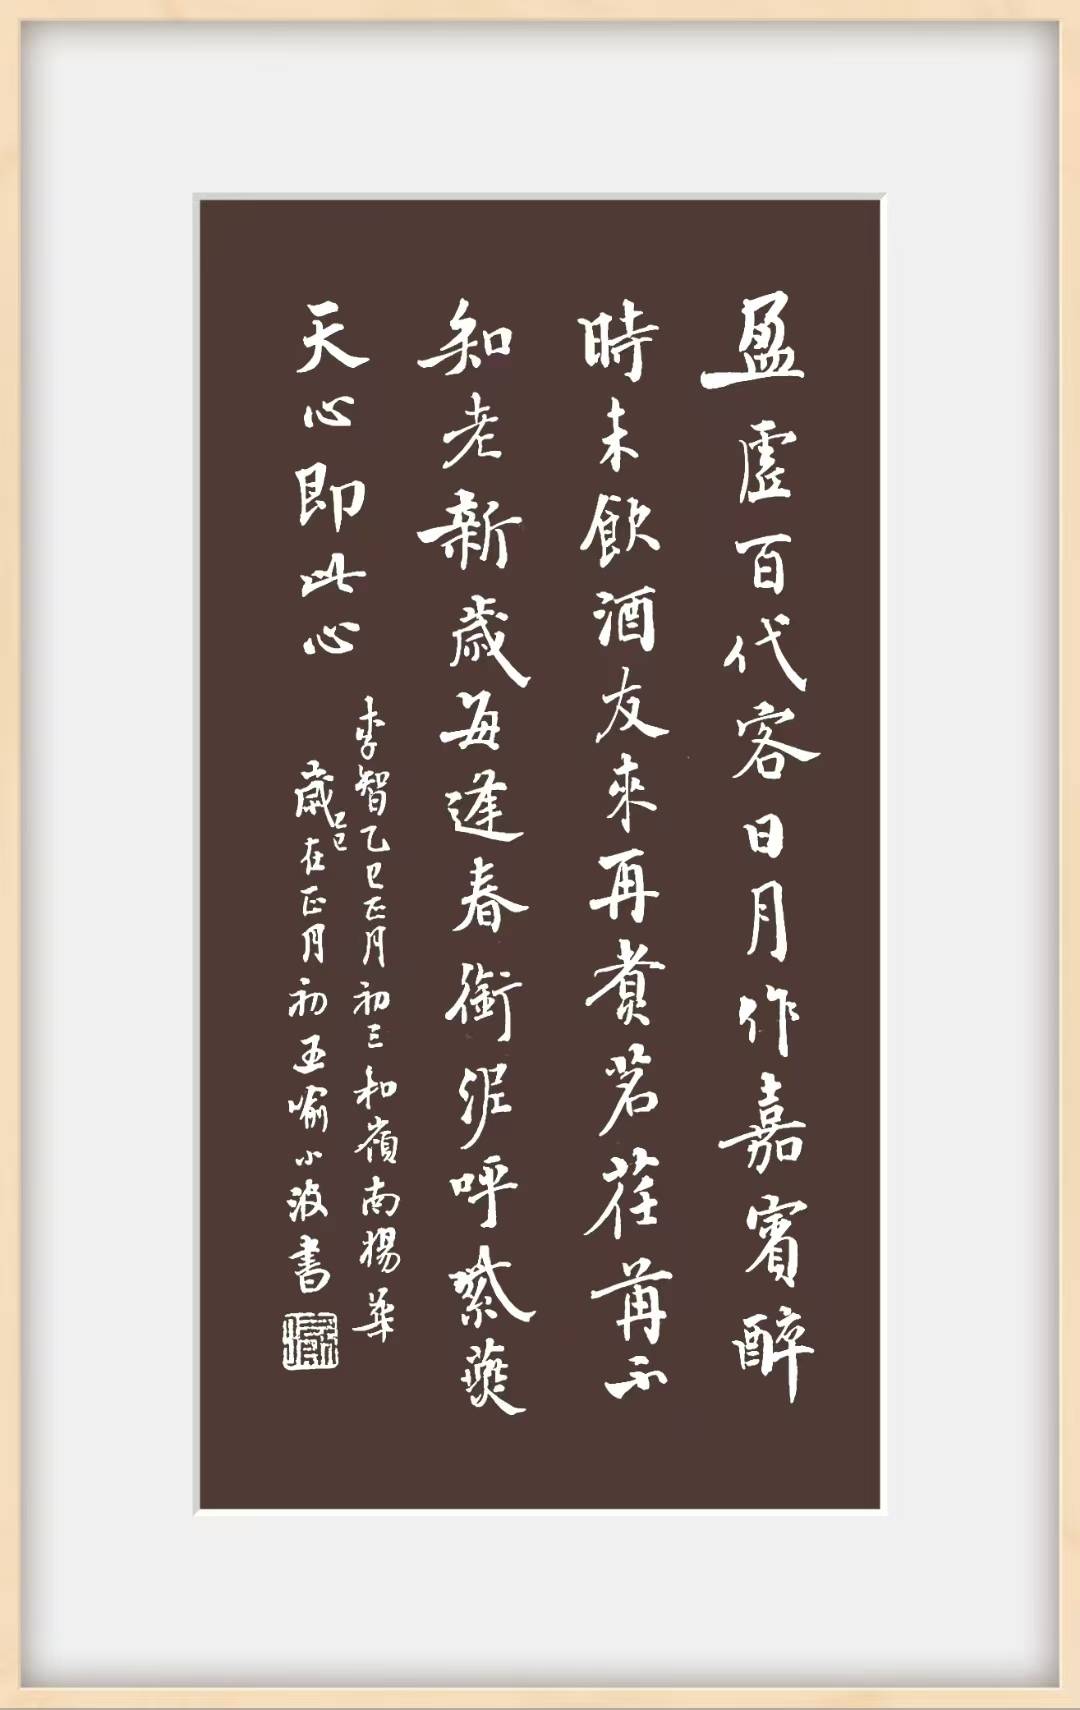 盈虛百代客日月作嘉賓醉
時未飲酒友來再煑茗荏苒不
知老新歲每逢春銜泥呼紫燕
天心即此心
李智乙巳正月初三和嶺南楊華
歲乙巳在正月初五喻小波書